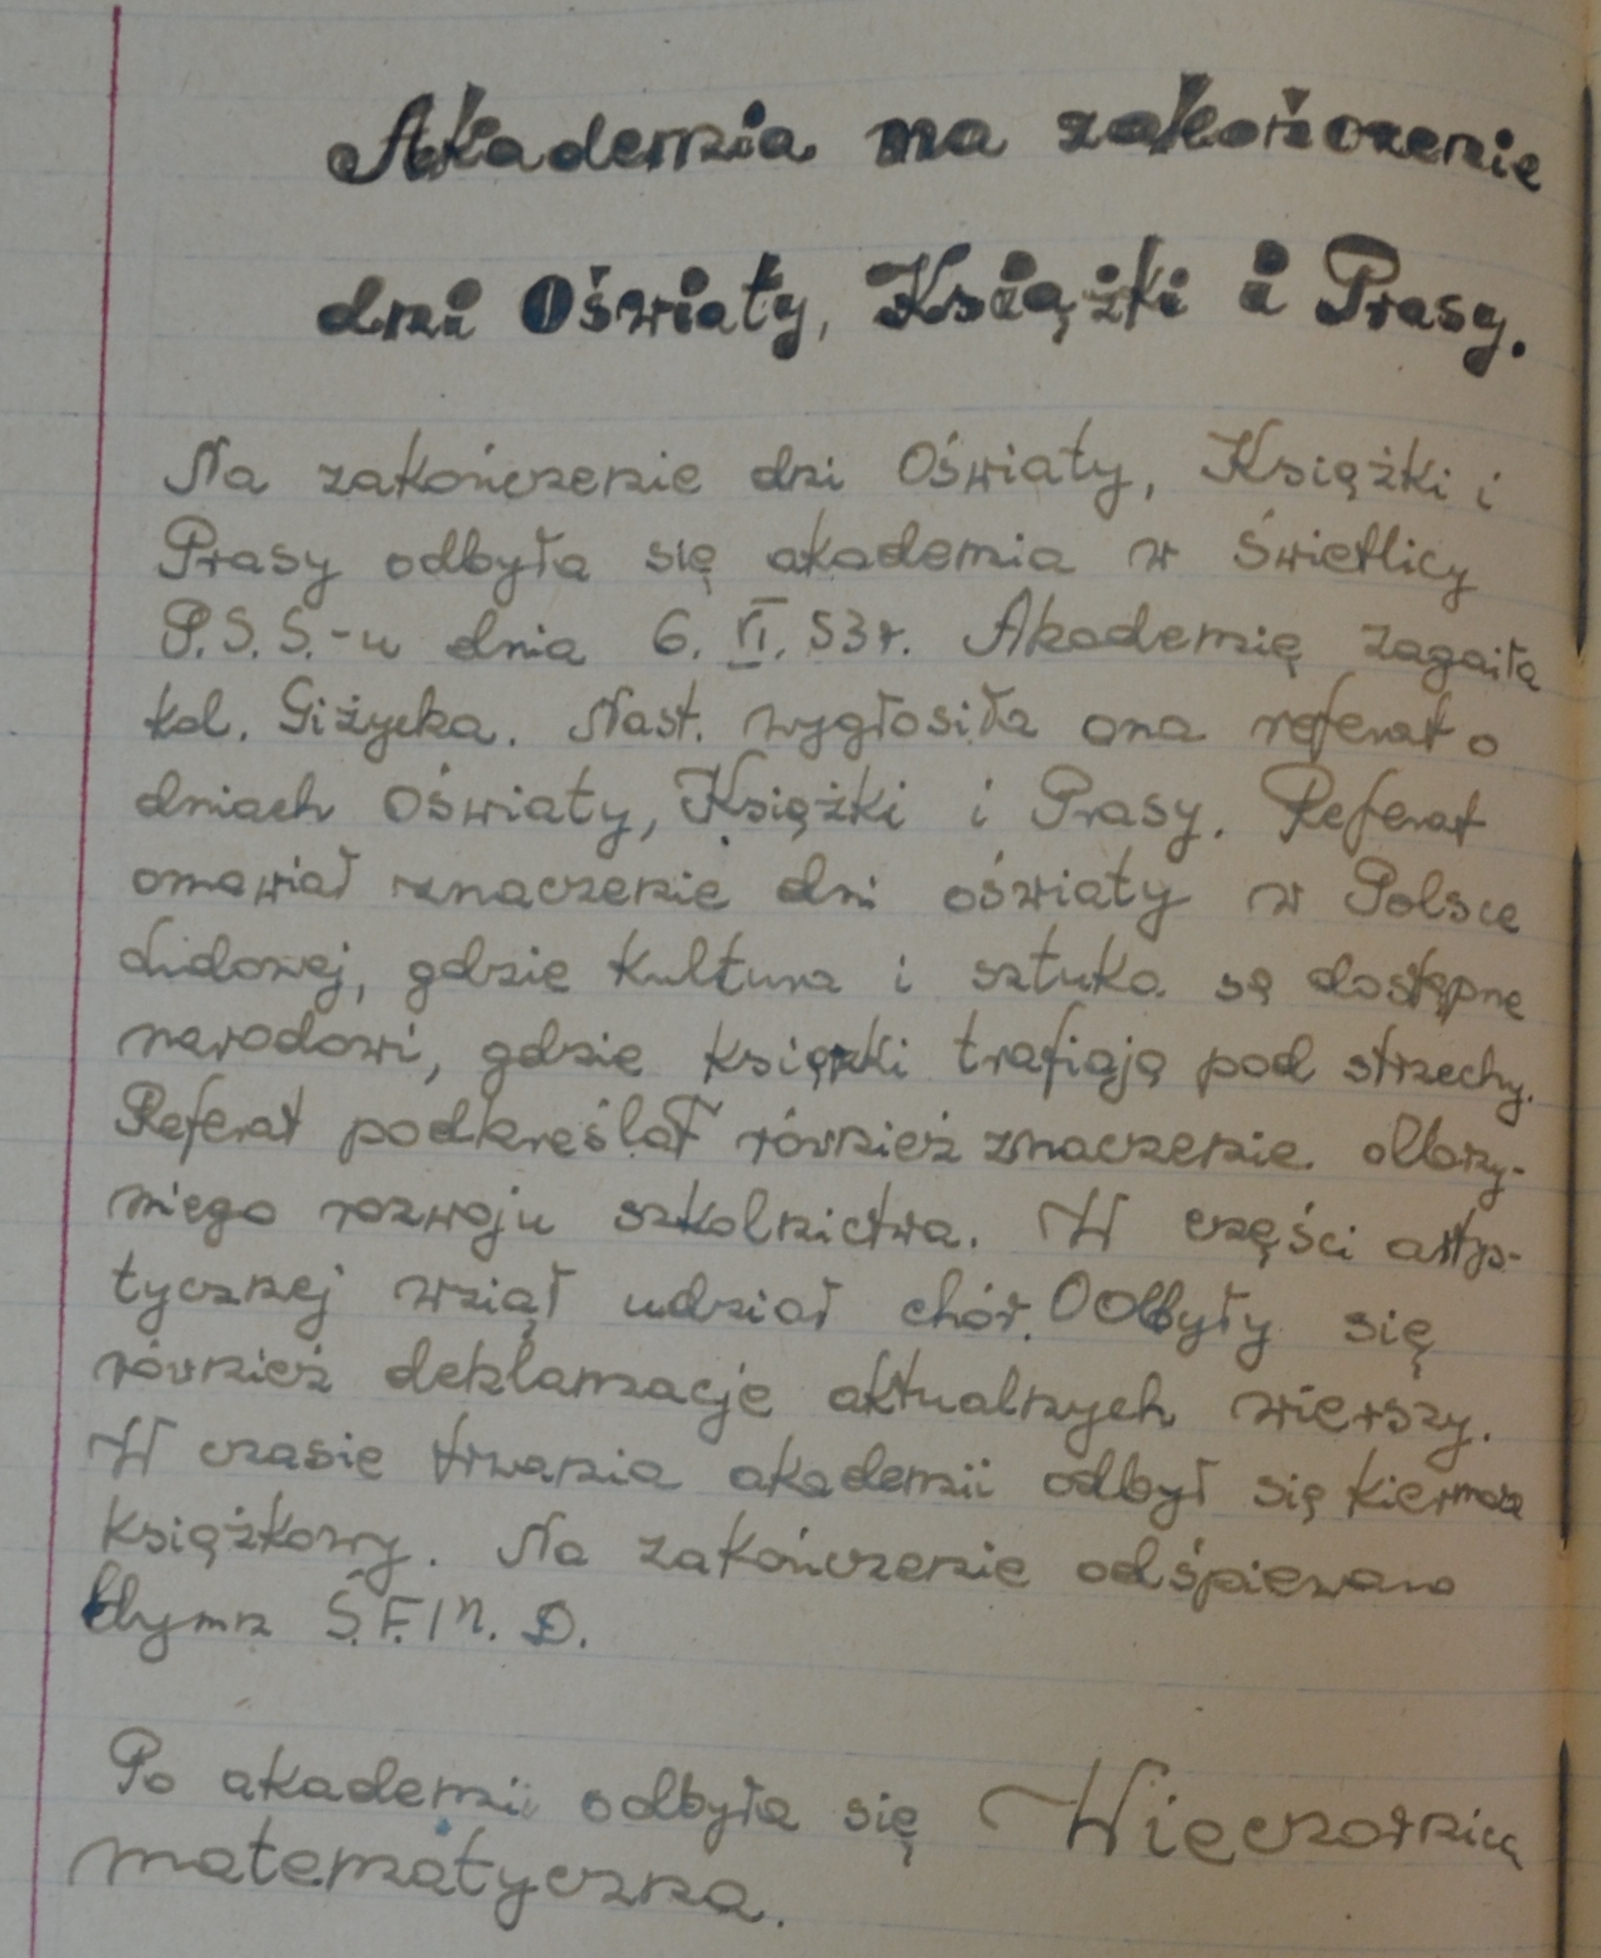 Akademia na zakończenie
dni Oświaty, Książki i Prasy.
Na zakończenie dni Oświaty, Książki i
Prasy odbyła się akademia w świetlicy
P.S.S.-u dnia 6. VI. 53r. Akademię zagaiła
kol. Giżycka. Nast. wygłosiła ona referat o
dniach Oświaty, Książki i Prasy. Referat
omawiał znaczenie dni oświaty w Polsce
Ludowej, gdzie kultura i sztuka są dostępne
narodowi, gdzie książki trafiają pod strzechy.
Referat podkreślał również znaczenie olbrzy-
miego rozwoju szkolnictwa. W części artys-
tycznej wziął udział chór. Odbyły się
również deklamacje aktualnych wierszy.
W czasie trwania akademii odbył się kiermasz
książkowy. Na zakończenie odśpiewano
Hymn Ś.F.M.D.
Po akademii odbyła się Wieczornica
matematyczna.